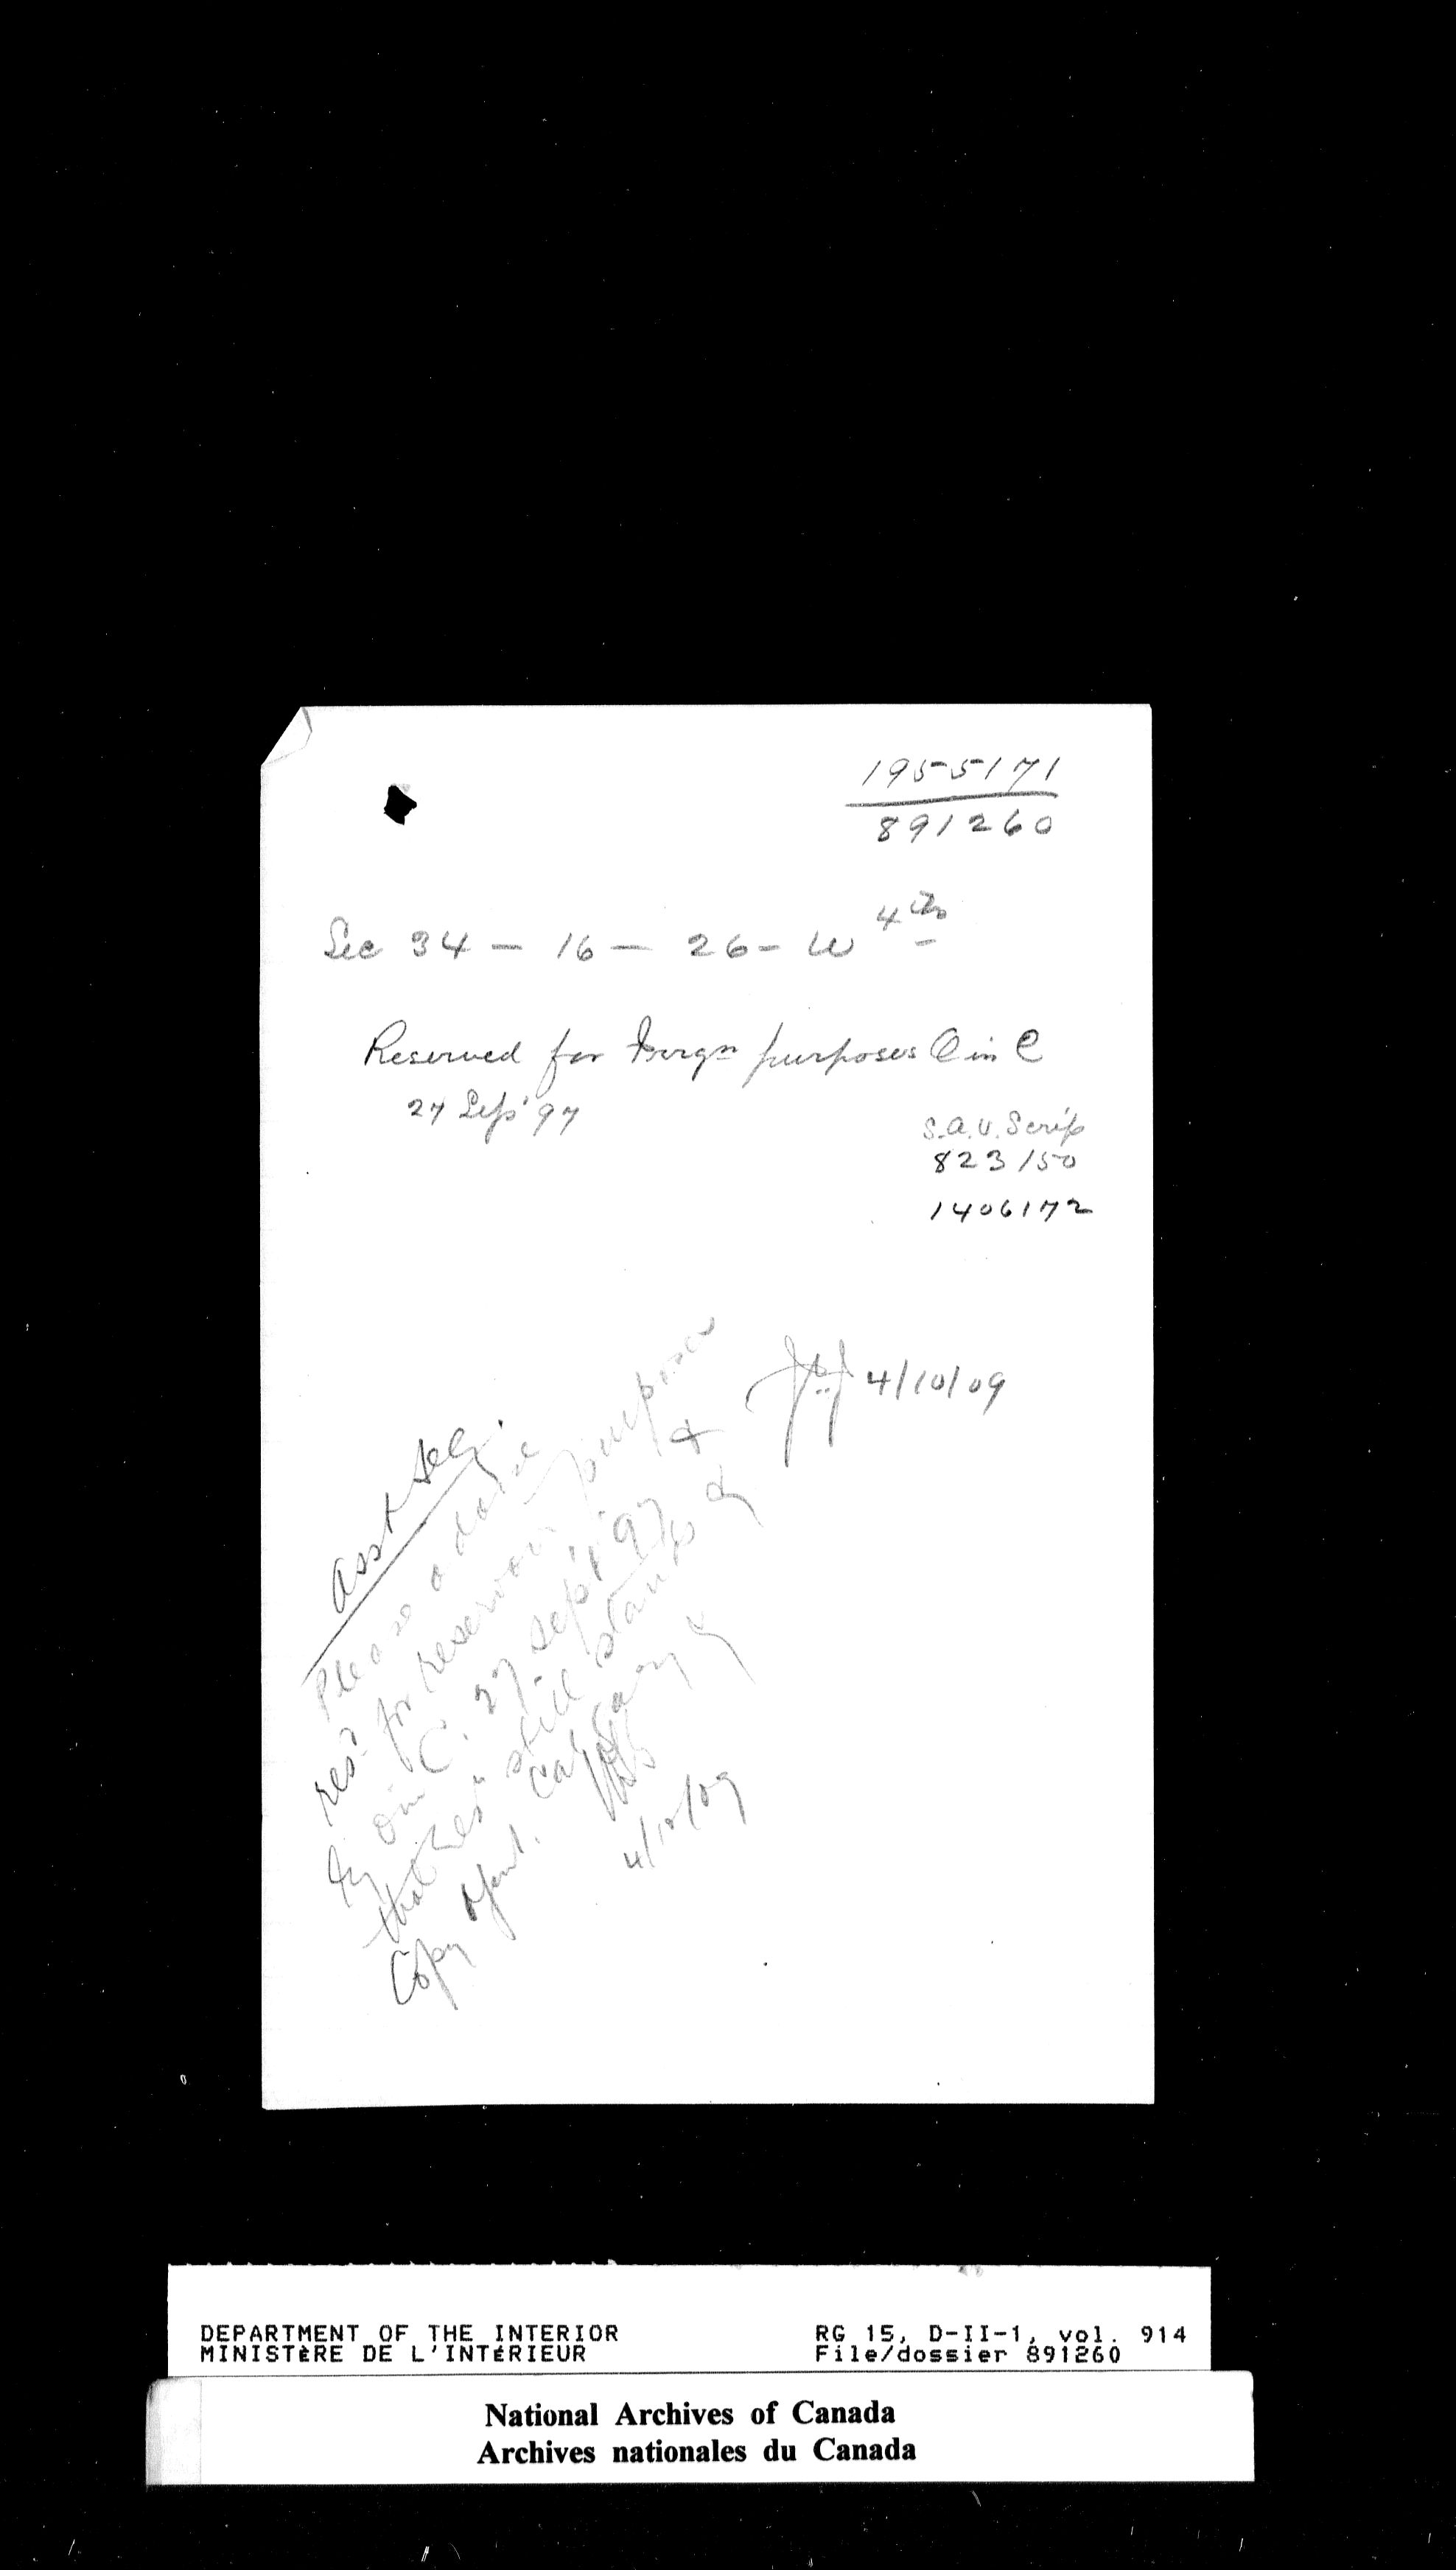 1955171
891260
Sec 34 - 16 - 26 - W 4th
Reserved for Irrign purposes O in C
27 Sept '97
S.A.V. Scrip
823150
1406172
4/10/09
Asst Secy.
Please advise
resd. for reservoir purposes
by O in C. 27 Sept 97 &
that resn still stands
Copy Agent. Calgary
4/10/09
DEPARTMENT OF THE INTERIOR
MINISTÈRE DE L'INTÉRIEUR
RG 15, D-II-1, vol. 914
File/dossier 891260
National Archives of Canada
Archives nationales du Canada